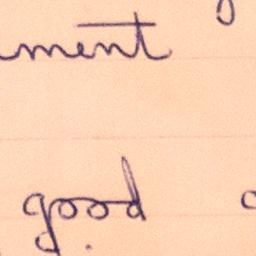 ment
good